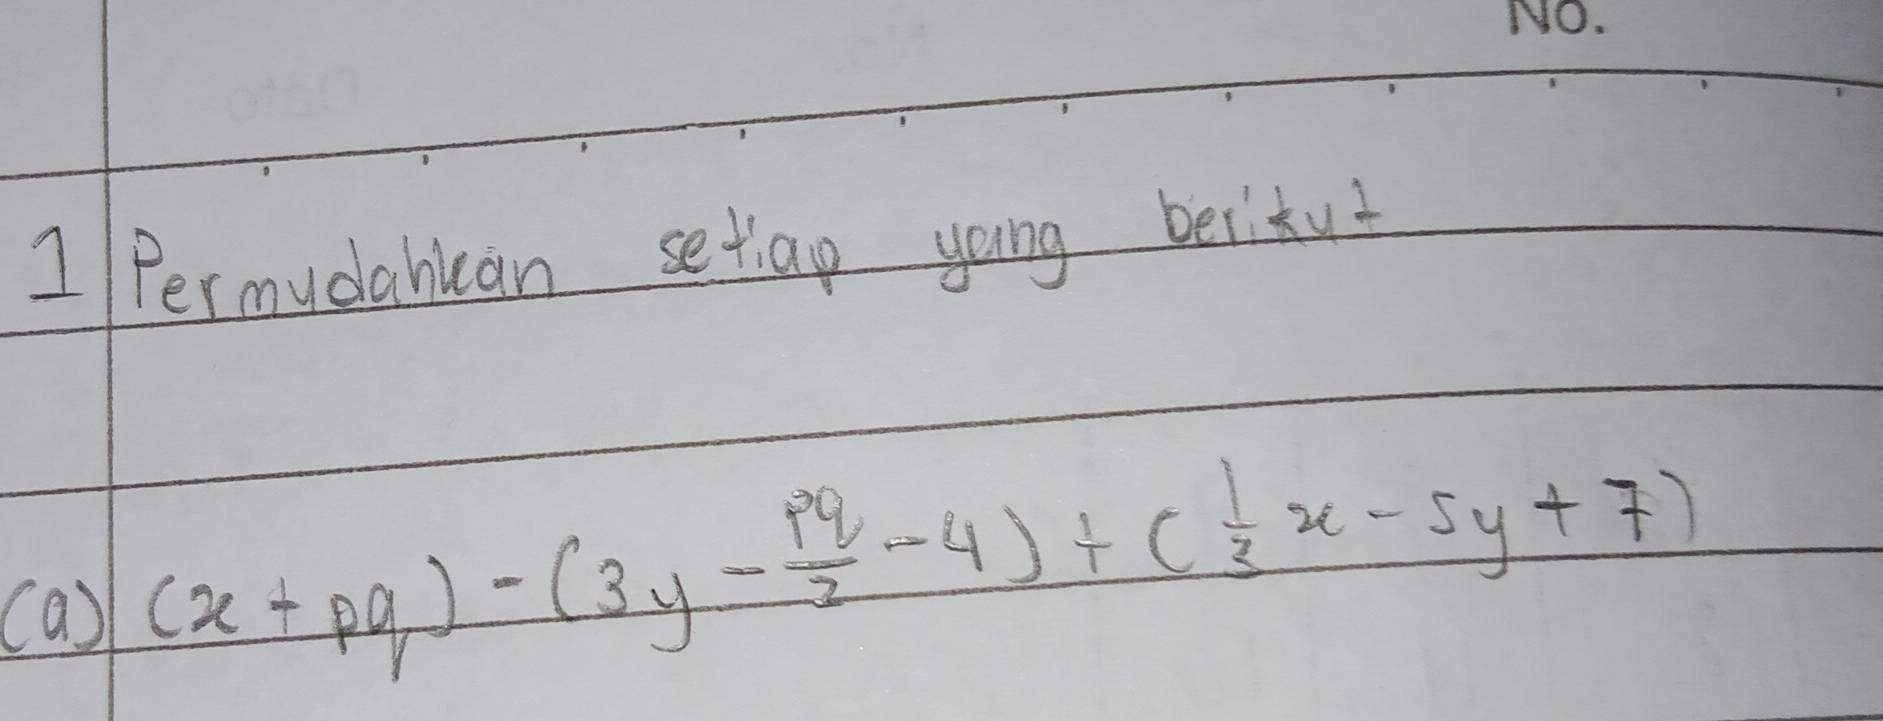 No.
1 Permudahkan setiap yang berikut
(a) (x + pq) - (3y - pq/2 - 4) + (1/3 x - 5y + 7)